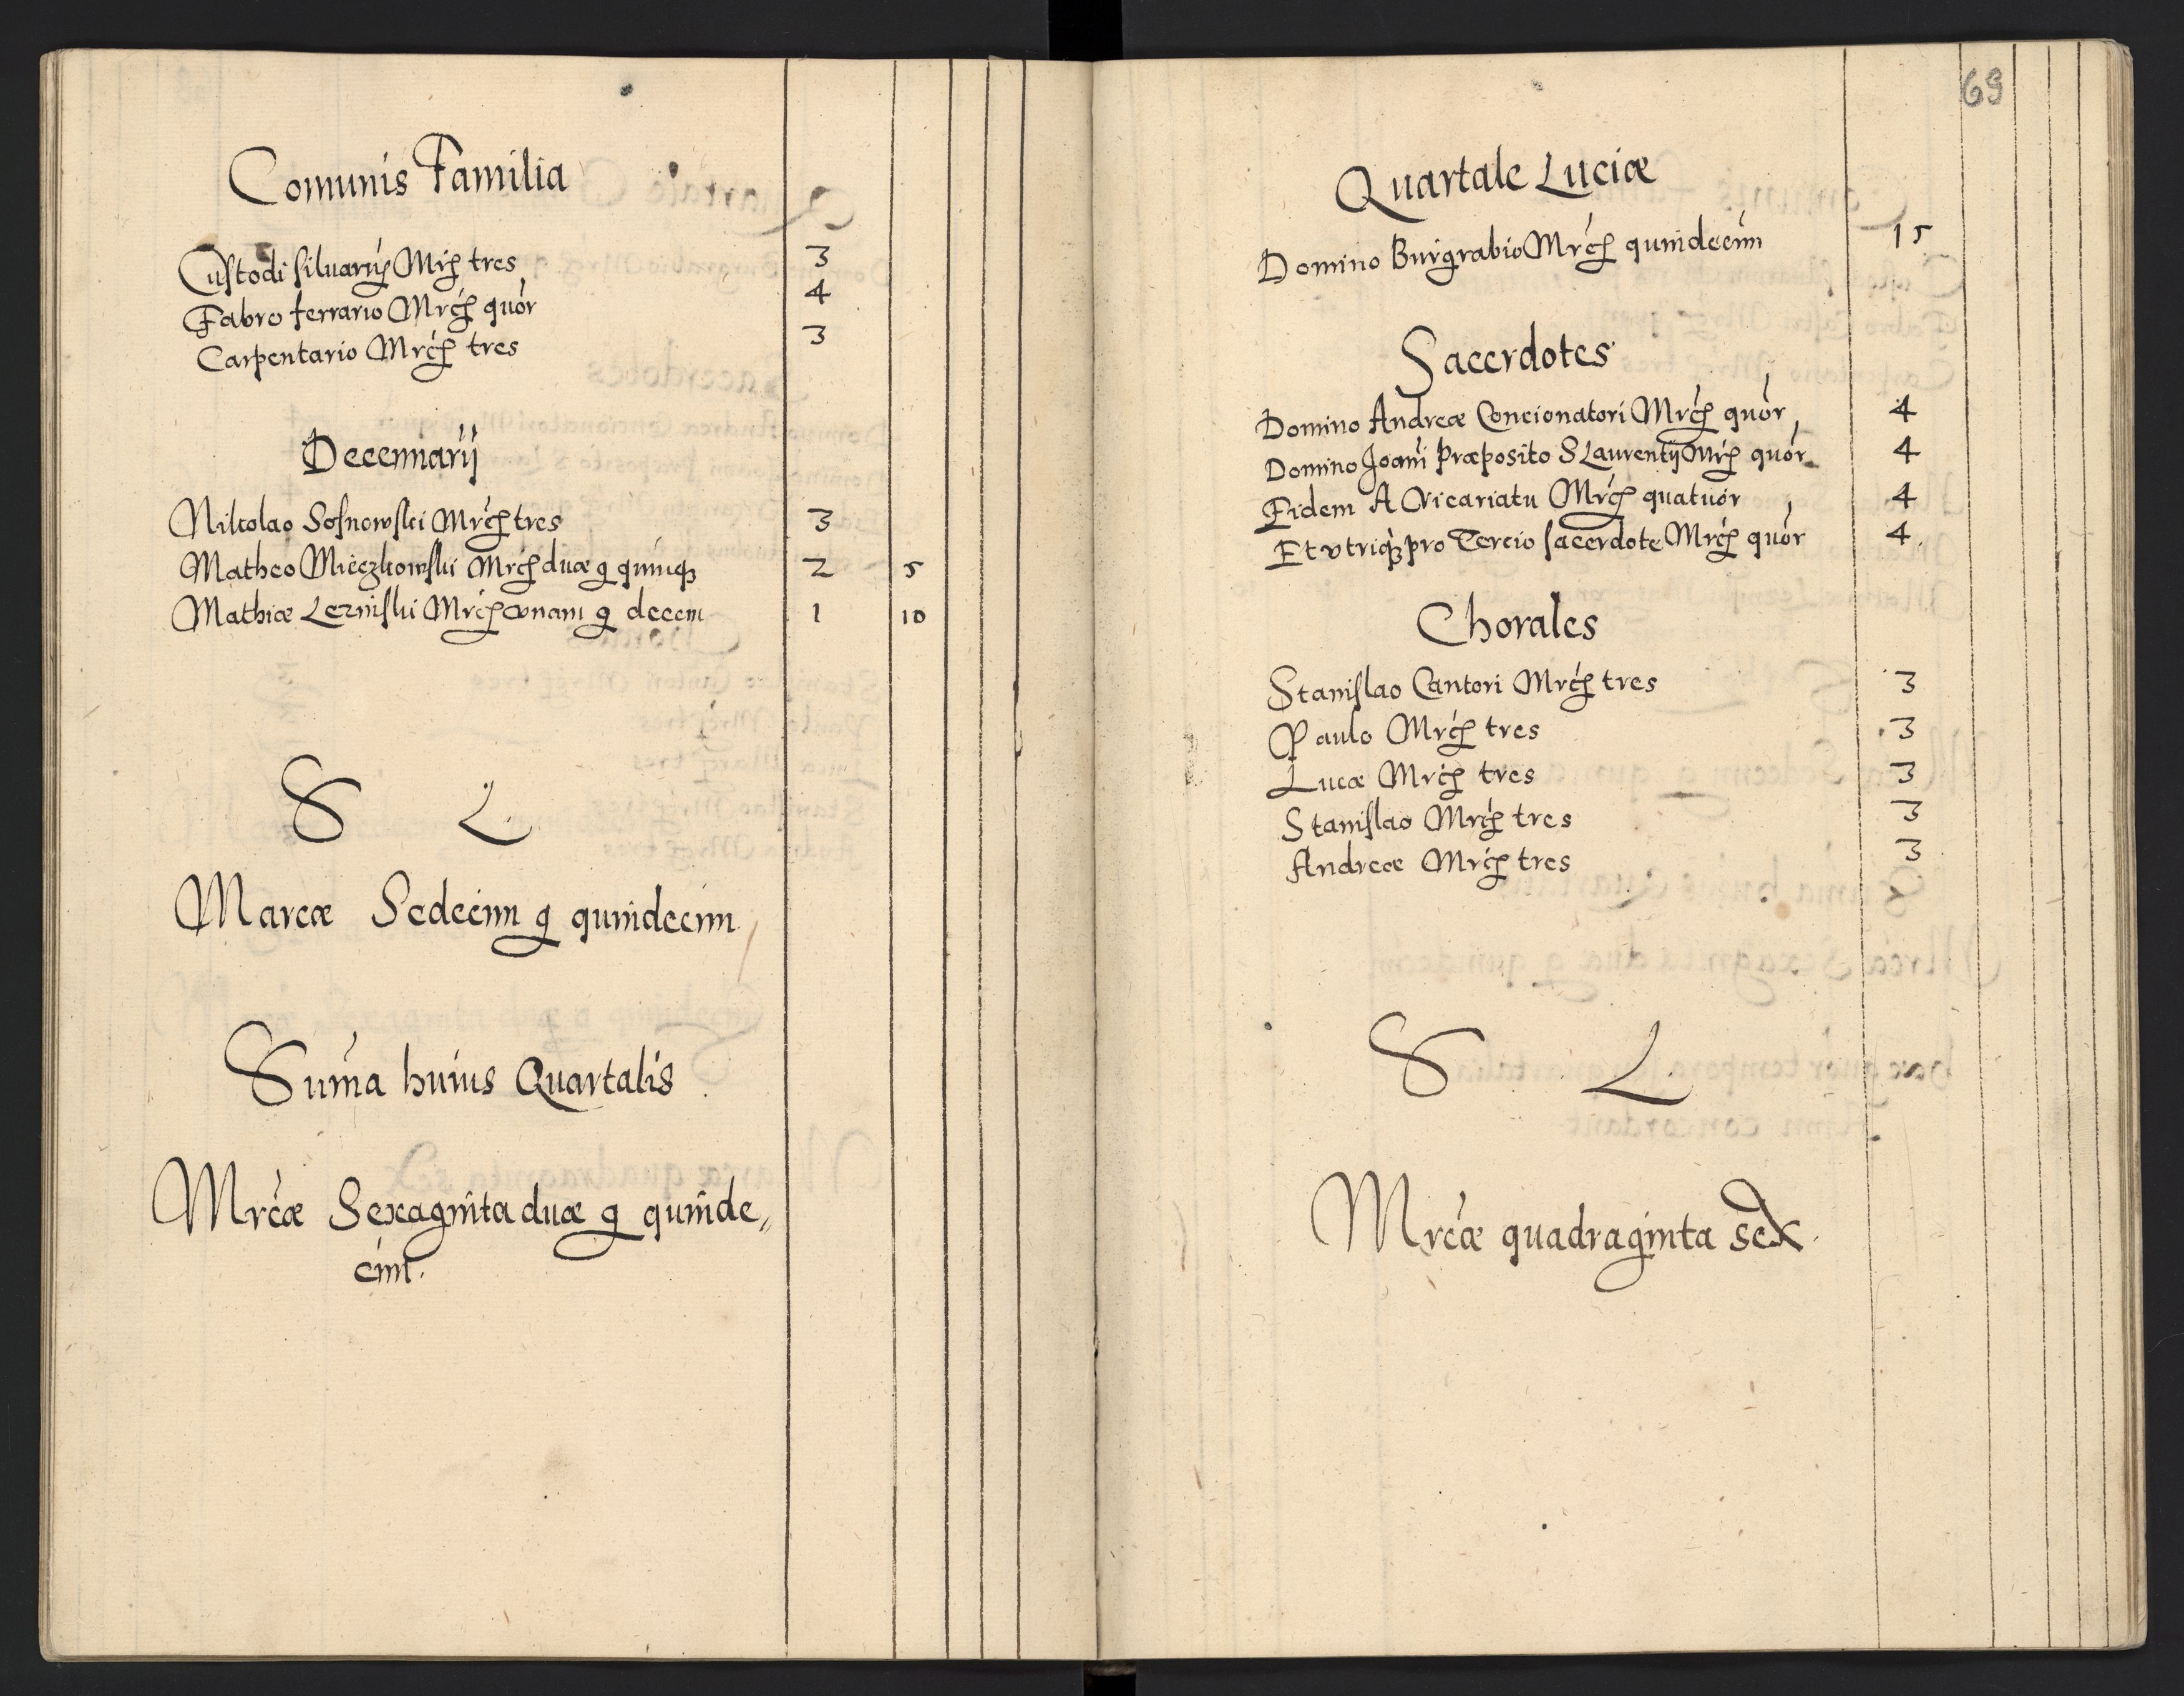 Comunis Familia
Custodi siluarũ Mrĉ tres 3
Fabro ferrario Mrĉ quór 4
Carpentario Mrĉ tres 3
Decennarij
Nikolao Sosnowski Mrĉ tres 3
Matheo Mieczkowski Mrĉ duæ g quinqꝫ 2 5
Mathiæ Lezniski Mrĉ vnam g decem 1 10
S L
Marcæ Sedecim g quindecim
Suma huius Quartalis
Mrcæ Sexaginta duæ g quinde„
cim.
69
Quartale Luciæ
Domino Burgrabio Mrĉ quindecim 15
Sacerdotes
Domino Andreæ Concionatori Mrĉ quór 4
Domino Joani Præposito S Laurentij Mrĉ quór 4
Eidem A Vicariatu Mrĉ quatuor 4
Et vtriqꝫ pro Tercio sacerdote Mrĉ quór 4
Chorales
Stanislao Cantori Mrĉ tres 3
Paulo Mrĉ tres 3
Lucæ Mrĉ tres 3
Stanislao Mrĉ tres 3
Andreæ Mrĉ tres 3
S L
Mrcæ quadraginta sex.